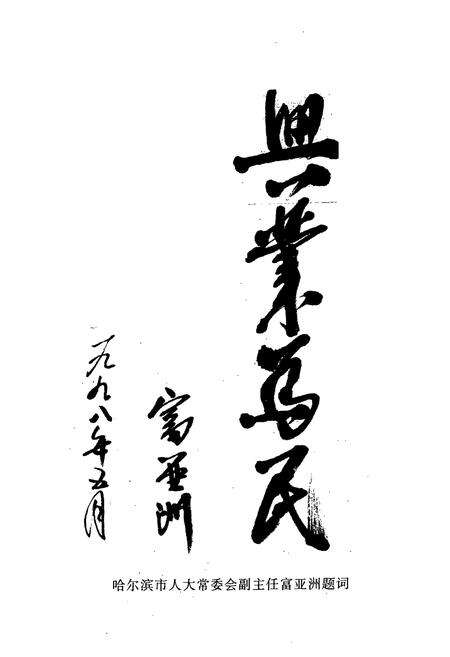 興業为民
富亚洲
一九九八年五月
哈尔滨市人大常委会副主任富亚洲题词